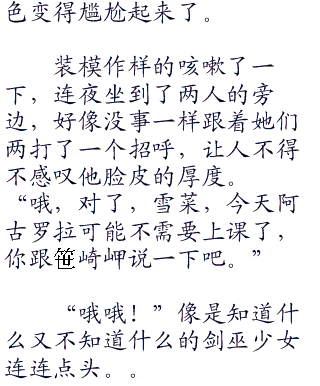 色变得尴尬起来了。
装模作样的咳嗽了一
下，连夜坐到了两人的旁
边，好像没事一样跟着她们
两打了一个招呼，让人不得
不感叹他脸皮的厚度。
“哦，对了，雪菜，今天阿
古罗拉可能不需要上课了，
你跟笹崎岬说一下吧。”
“哦哦！”像是知道什
么又不知道什么的剑巫少女
连连点头。。